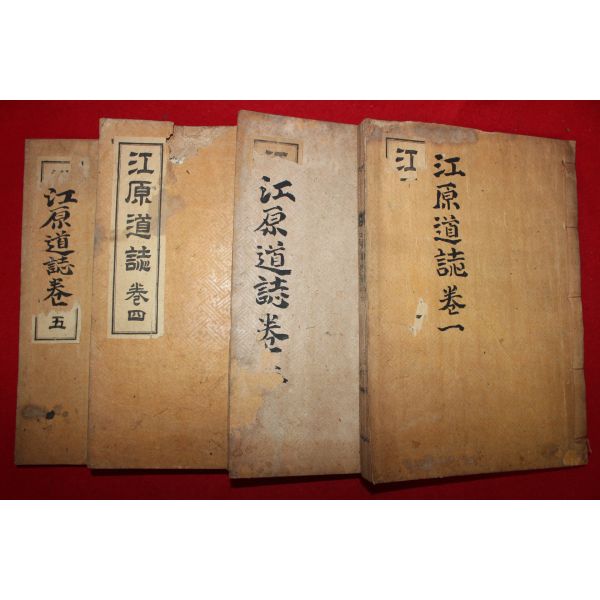 江原道誌 卷一
江
江原道誌卷
江原道誌 卷四
江原道誌卷五